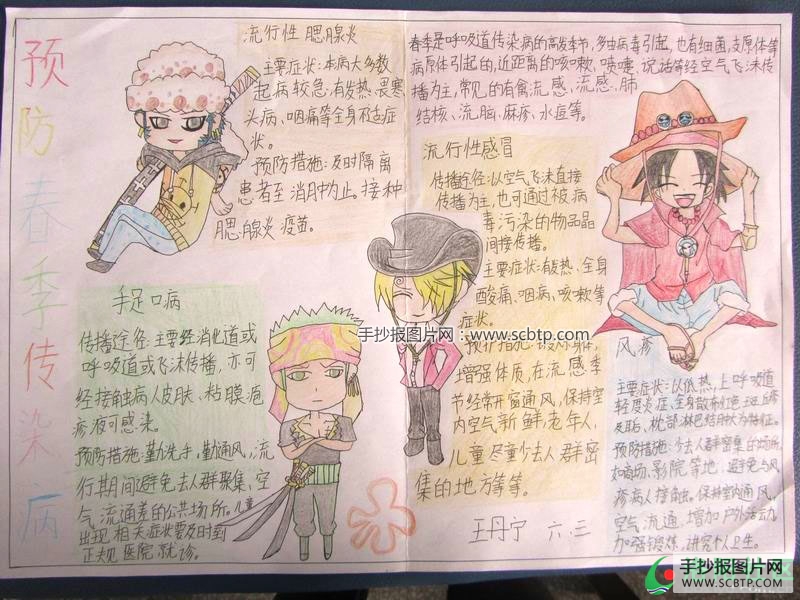 预防春季传染病
流行性 腮腺炎
主要症状:本病大多数
起病较急,有发热、畏寒
头病、咽痛等全身不适症
状。
预防措施:及时隔离
患者至消肿为止。接种
腮腺炎疫苗。
春季是呼吸道传染病的高发季节,多由病毒引起,也有细菌,支原体等
病原体引起的,近距离的咳嗽、喷嚏、说话等经空气飞沫传
播为主,常见的有禽流感、流感、肺
结核、流脑、麻疹、水痘等。
流行性感冒
传播途径:以空气飞沫直接
传播为主,也可通过被病
毒污染的物品
间接传播。
主要症状:有发热、全身
酸痛、咽病、咳嗽等
症状。
增强体质,在流感季
节经常开窗通风,保持室
内空气新鲜,老年人,
儿童尽童少去人群密
集的地方等等。
手足口病
传播途径:主要经消化道或
呼吸道或飞沫传播,亦可
经接触病人皮肤、粘膜疱
疹液可感染。
预防措施:勤洗手,勤通风,流
行期间避免去人群聚集、空
气流通差的公共场所。儿童
出现相关症状要及时到
正规医院就诊。
风疹
主要症状:以低热,上呼吸道
轻度炎症、全身散布红色斑丘疹
及耳后、枕部淋巴结肿大为特征。
预防措施:少去人群密集的场所,
如商场、影院等地,避免与风
疹病人接触。保持室内通风,
空气流通,增加户外活动,
加强锻炼,讲究个人卫生。
王丹宁 六.三
手抄报图片网:www.scbtp.com
手抄报图片网
WWW.SCBTP.COM